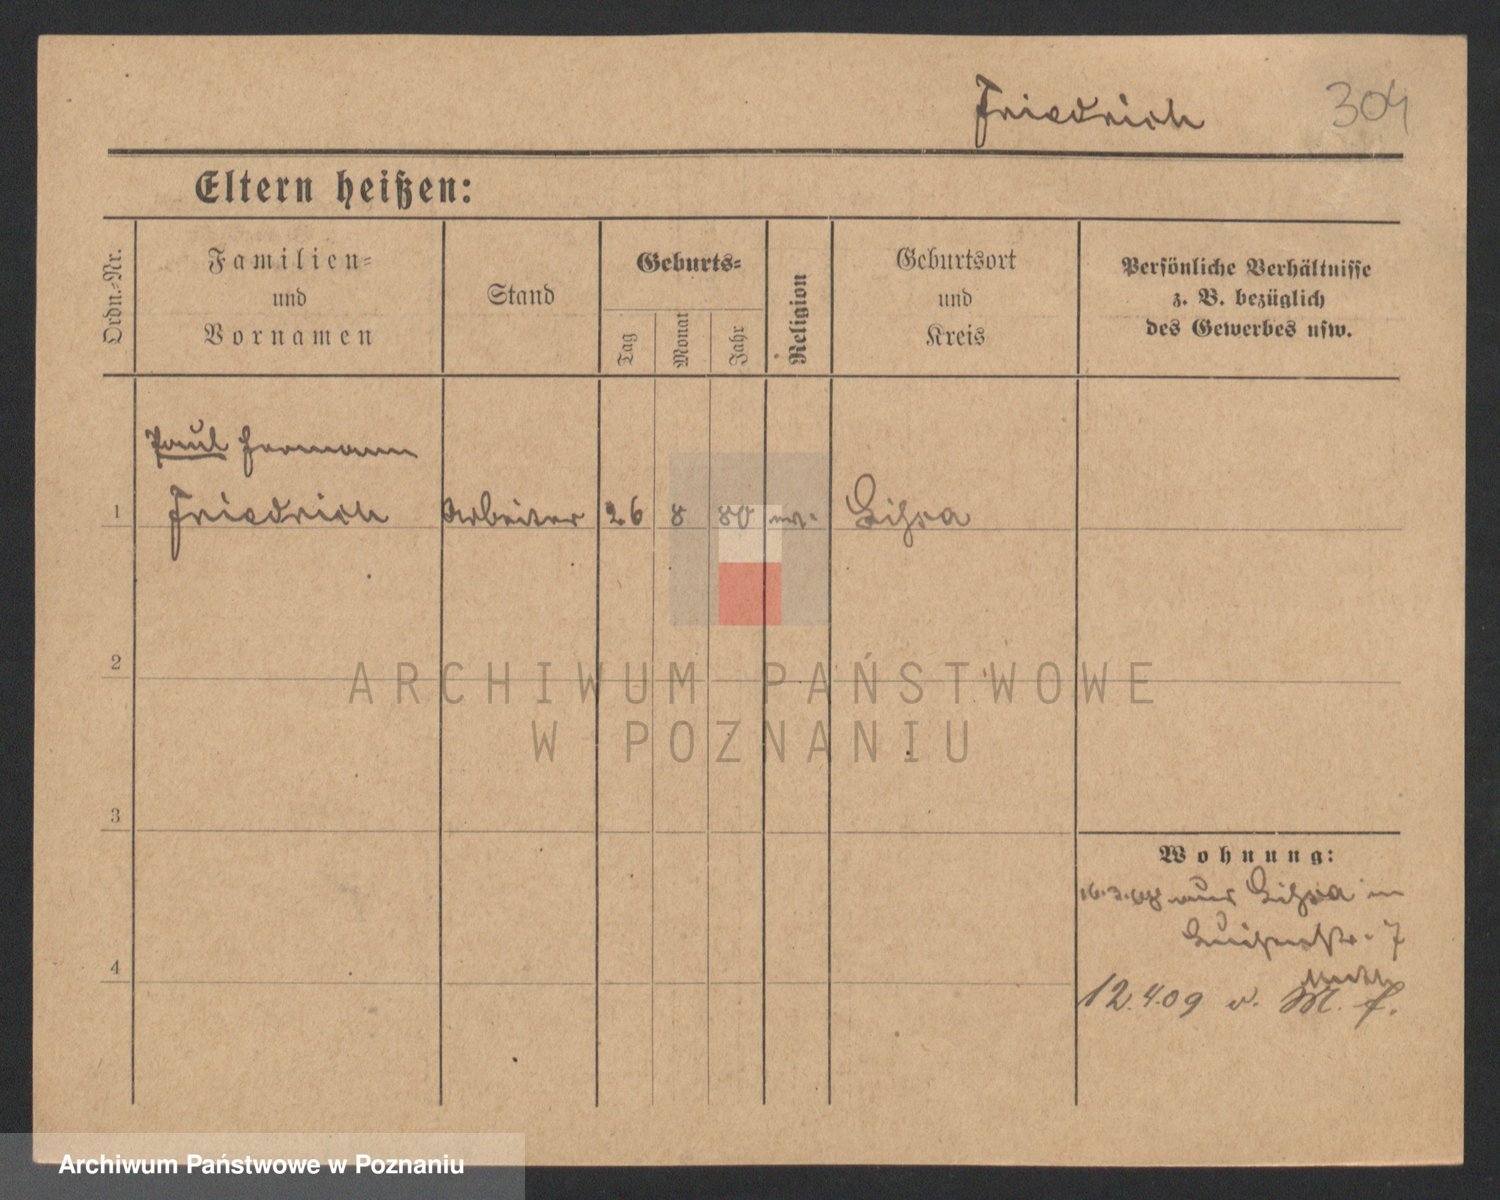 Friedrich 304
Eltern heißen:
Ordn.-Nr.
Familien-
und
Vornamen
Stand
Geburts-
Tag
Monat
Jahr
Religion
Geburtsort
und
Kreis
Persönliche Verhältnisse
z. B. bezüglich
des Gewerbes usw.
Paul Hermann
1 Friedrich Arbeiter 26 8 80 ev.
2
3
4
Wohnung:
aus in
Luisenstr. 7
12.4.09 v. M. f.
ARCHIWUM PAŃSTWOWE
W POZNANIU
Archiwum Państwowe w Poznaniu